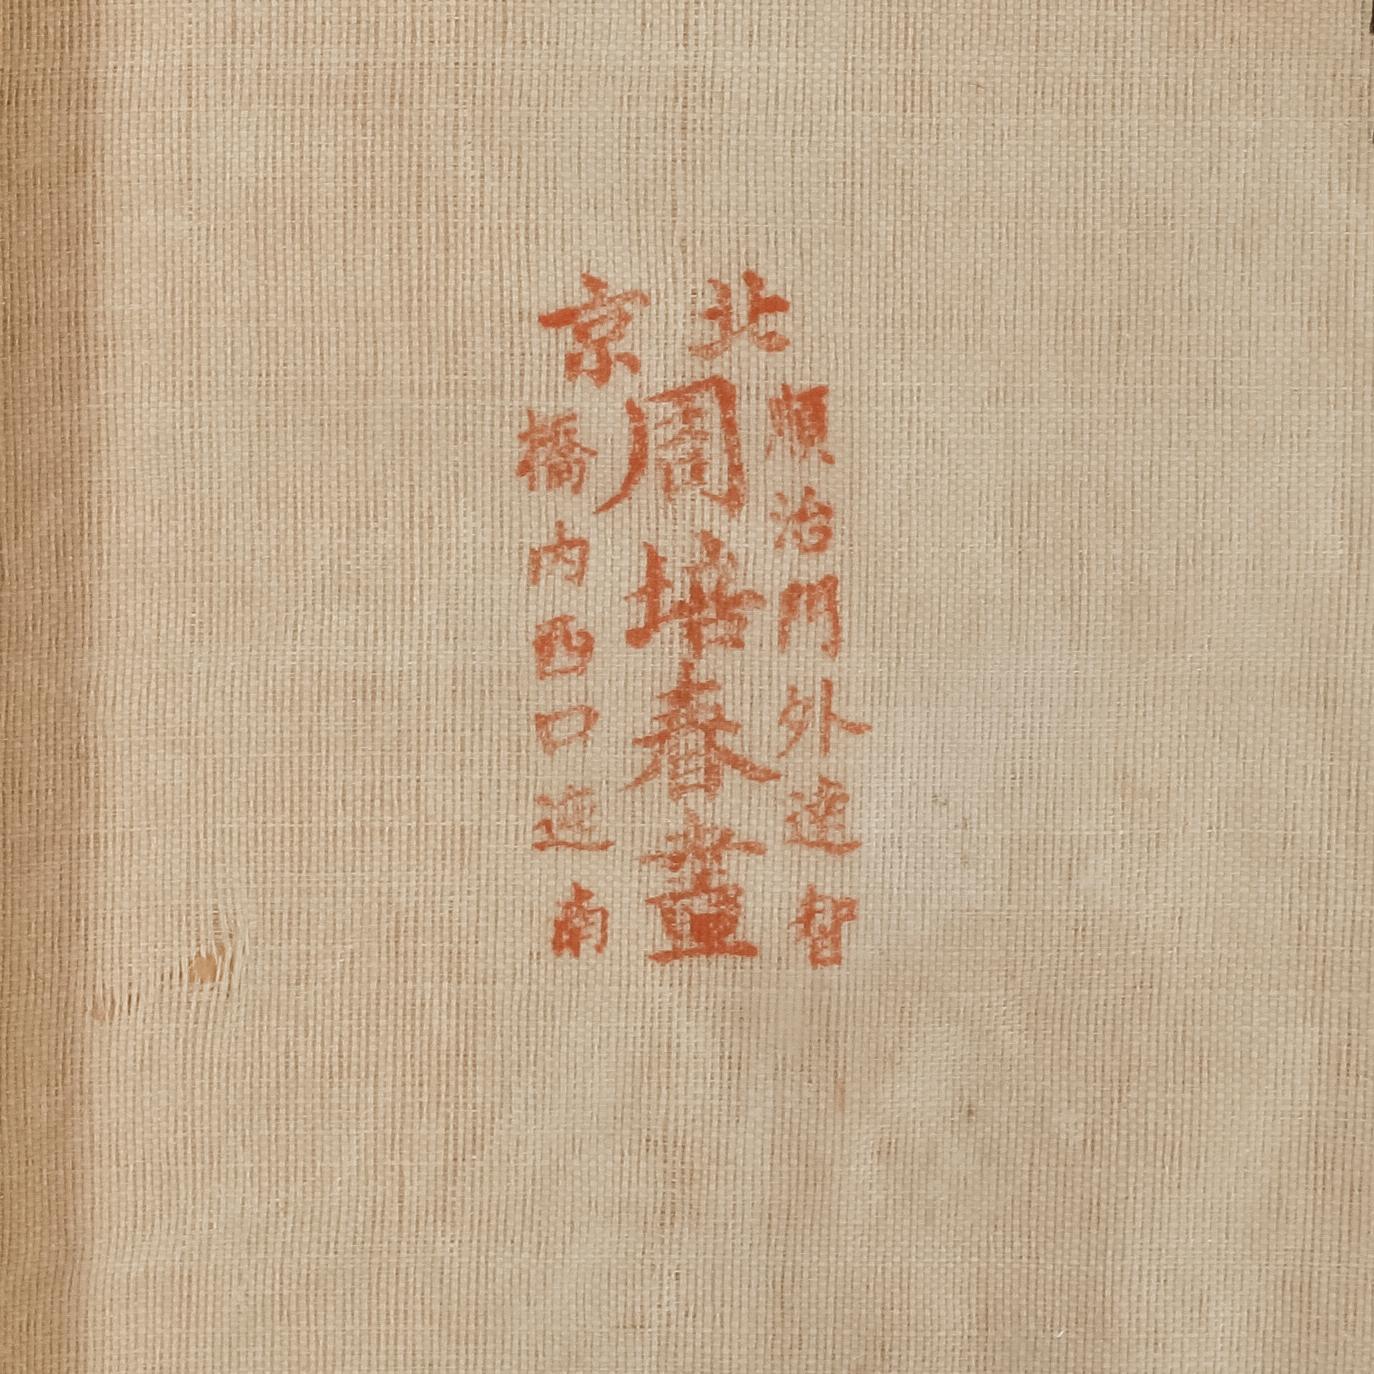 北京
順治門外達智
周培春畫
橋内西口迤南